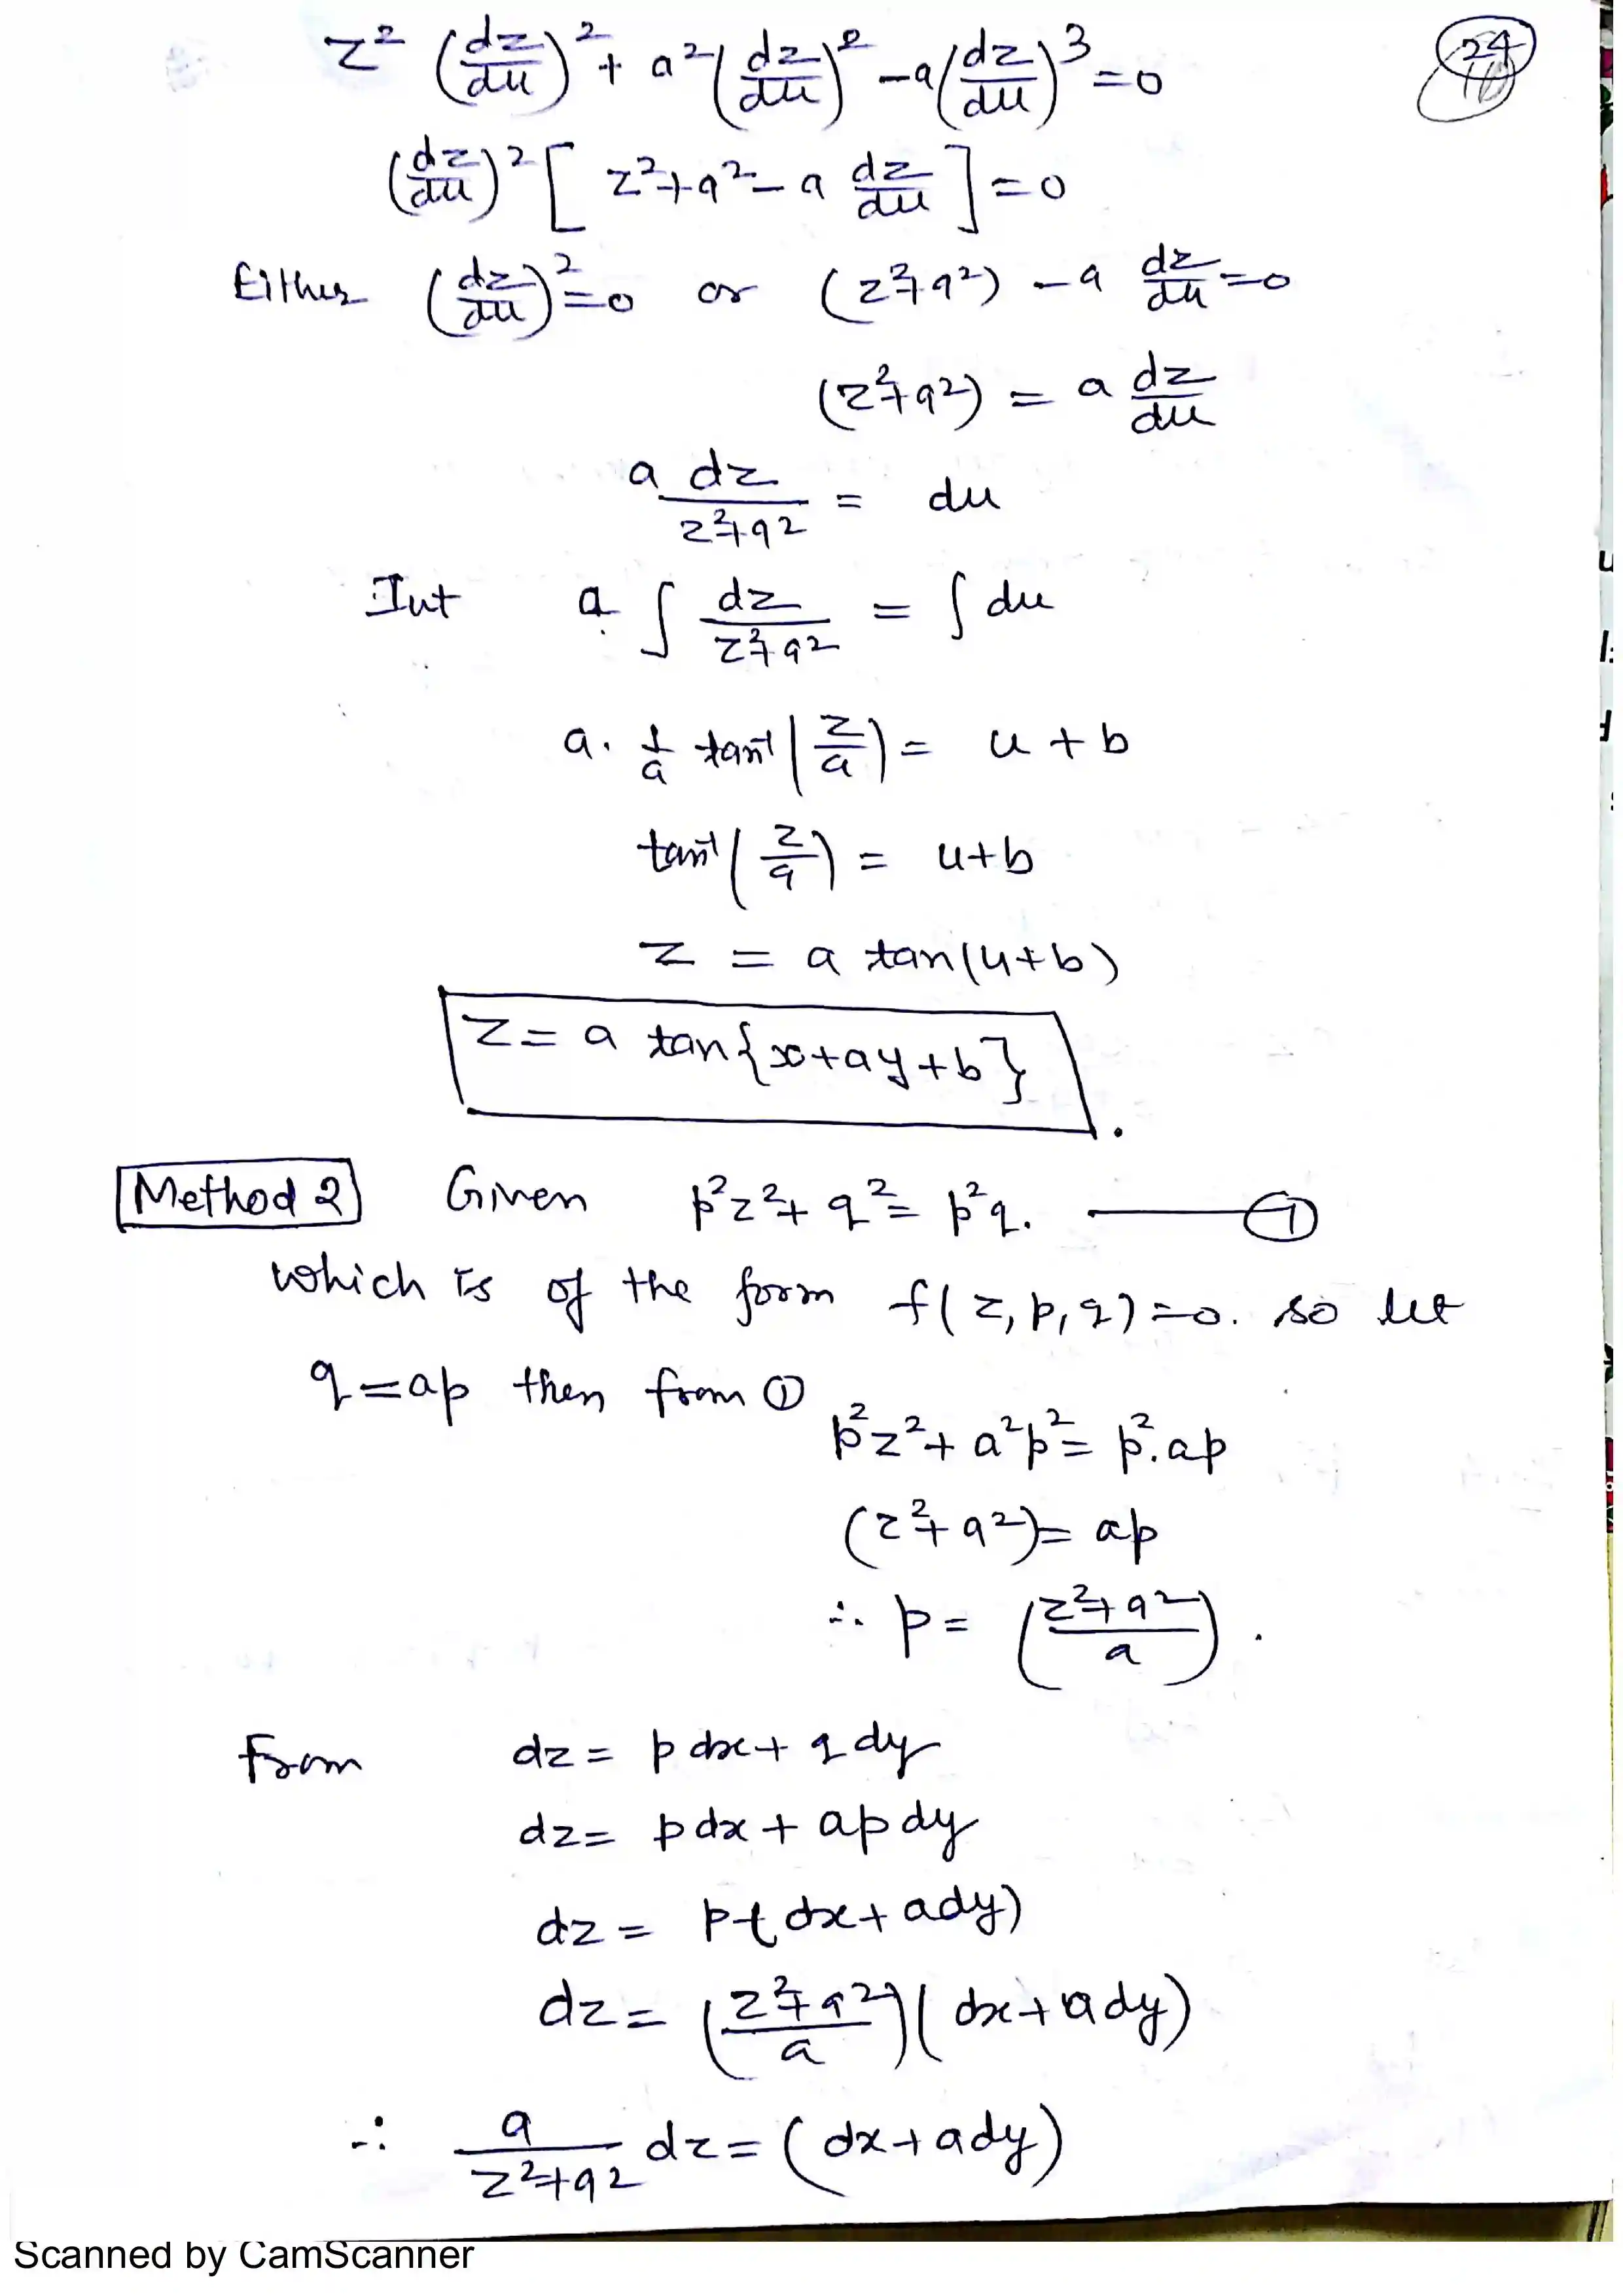 z² (dz/du)² + a² (dz/du)² - a (dz/du)³ = 0
24
(dz/du)² [ z² + a² - a dz/du ] = 0
Either (dz/du)² = 0 or (z² + a²) - a dz/du = 0
(z² + a²) = a dz/du
a dz / z² + a² = du
Int a ∫ dz / z² + a² = ∫ du
a. 1/a tan⁻¹ (z/a) = u + b
tan⁻¹ (z/a) = u + b
z = a tan(u + b)
z = a tan{x + ay + b} .
Method 2 Given p²z² + q² = p²q. ——— ①
which is of the form f(z, p, q) = 0. so let
q = ap then from ①
p²z² + a²p² = p². ap
(z² + a²) = ap
∴ p = (z² + a² / a) .
From dz = p dx + q dy
dz = p dx + ap dy
dz = p (dx + ady)
dz = (z² + a² / a) (dx + ady)
∴ a / z² + a² dz = (dx + ady)
Scanned by CamScanner